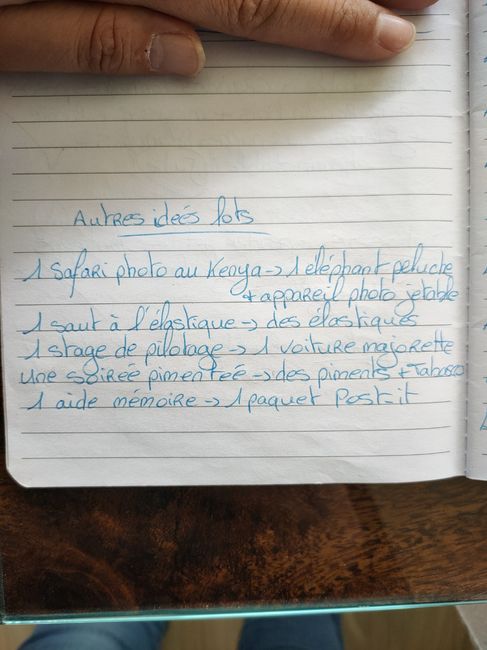 Autres ideés lots
1 Safari photo au Kenya → 1 eléphant peluche
+ appareil photo jetable
1 saut à l'élastique → des élastiques
1 stage de pilotage → 1 voiture majorette
une soirée pimentée → des piments + Tabasco
1 aide mémoire → 1 paquet Post-it